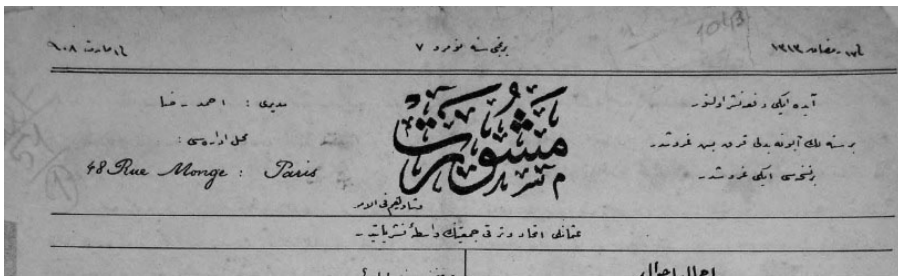 رمضان ١٣١٣
برنجى سنه نومرو ٧
مارت ١٠٨
آيده ايكى دفعه نشر اولنور
بر سنه لك آبونه بدلى قرق بش غروشدر
برنسخه سى ايكى غروشدر
مشورت
و شاورهم فى الامر
مديرى : احمد رضا
محل اداره سى :
48 Rue Monge : Paris
عثمانلى اتحاد و ترقى جمعيتنك واسطهٔ نشرياتيدر
اجمال احوال